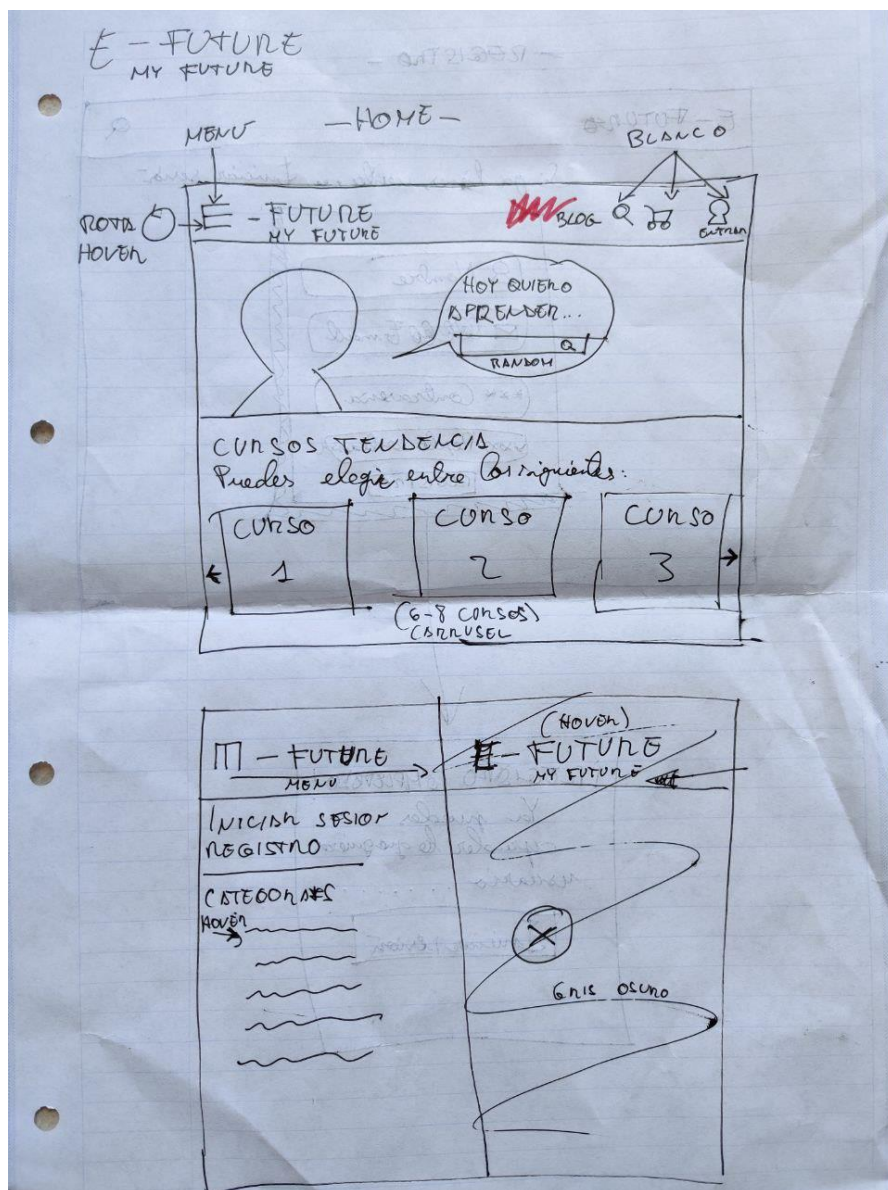 E - FUTURE
MY FUTURE
- HOME -
MENU
BLANCO
ROTA
HOVER
E - FUTURE
MY FUTURE
BLOG
ENTRAR
HOY QUIERO
APRENDER...
RANDOM
CURSOS TENDENCIA
Puedes elegir entre los siguientes:
CURSO
1
CURSO
2
CURSO
3
(6-8 CURSOS)
CARRUSEL
E - FUTURE
MENU
(HOVER)
E - FUTURE
MY FUTURE
INICIAR SESION
REGISTRO
CATEGORIAS
HOVER
X
GRIS OSCURO